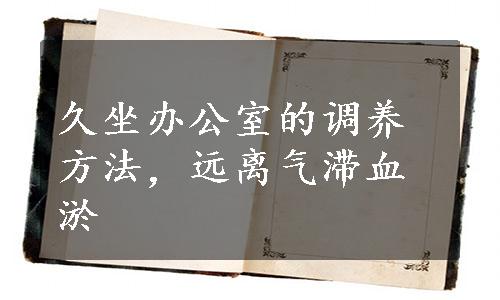 久坐办公室的调养
方法，远离气滞血
淤